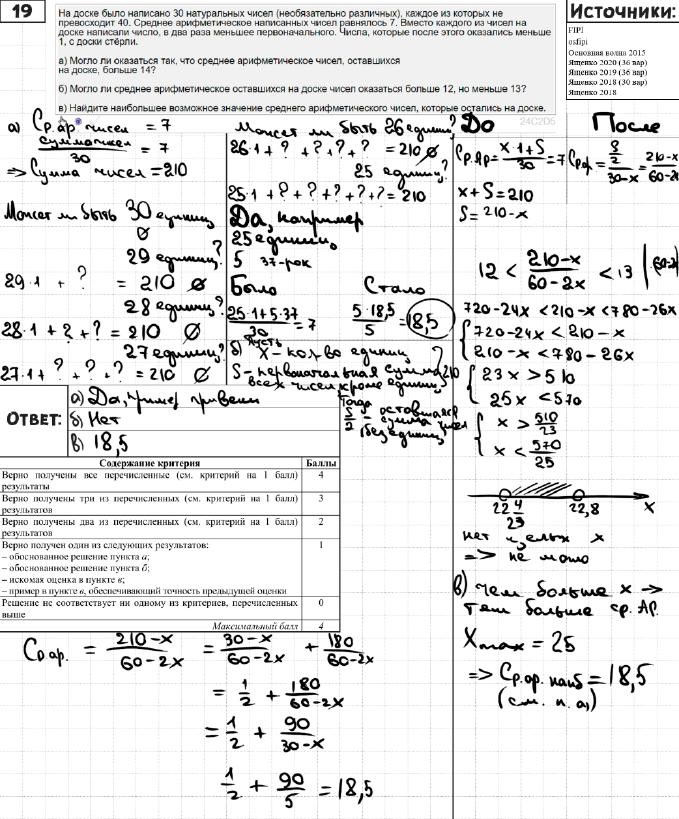 19
На доске было написано 30 натуральных чисел (необязательно различных), каждое из которых не
превосходит 40. Среднее арифметическое написанных чисел равнялось 7. Вместо каждого из чисел на
доске написали число, в два раза меньшее первоначального. Числа, которые после этого оказались меньше
1, с доски стёрли.
а) Могло ли оказаться так, что среднее арифметическое чисел, оставшихся
на доске, больше 14?
б) Могло ли среднее арифметическое оставшихся на доске чисел оказаться больше 12, но меньше 13?
в) Найдите наибольшее возможное значение среднего арифметического чисел, которые остались на доске.
24C2D5
Источники:
FIPI
osfipi
Основная волна 2015
Ященко 2020 (36 вар)
Ященко 2019 (36 вар)
Ященко 2018 (30 вар)
Ященко 2018
а) Ср.ар чисел = 7
сумма чисел / 30 = 7
=> Сумма чисел = 210
Может ли быть 30 единиц
∅
29 единиц?
29·1 + ? = 210 ∅
28 единиц?
28·1 + ? + ? = 210 ∅
27 единиц?
27·1 + ? + ? + ? = 210 ∅
Может ли быть 26 единиц?
26·1 + ? + ? + ? + ? = 210 ∅
25 единиц?
25·1 + ? + ? + ? + ? + ? = 210
Да, например
25 единиц,
5 37-рок
Было Стало
25·1+5·37 / 30 = 7 5·18,5 / 5 = 18,5
б) Пусть x - кол-во единиц
S - первоначальная сумма
всех чисел кроме единиц
210
Тогда
S/2 = оставшаяся
сумма чисел
без единиц
До После
Ср.Ар = x·1+S / 30 = 7
Ср.ар = S/2 / 30-x = 210-x / 60-2x
x + S = 210
S = 210 - x
12 < 210-x / 60-2x < 13 | (60-2x)
720-24x < 210-x < 780-26x
{ 720-24x < 210-x
210-x < 780-26x
{ 23x > 510
25x < 570
{ x > 510/23
x < 570/25
22 4/23 22,8 x
нет целых x
=> не могло
в) чем больше x ->
тем больше ср. Ар.
Xmax = 25
=> Ср.ар. наиб = 18,5
(см. п. а)
ОТВЕТ:
а) Да, пример приведен
б) Нет
в) 18,5
Содержание критерия Баллы
Верно получены все перечисленные (см. критерий на 1 балл) 4
результаты
Верно получены три из перечисленных (см. критерий на 1 балл) 3
результатов
Верно получены два из перечисленных (см. критерий на 1 балл) 2
результатов
Верно получен один из следующих результатов: 1
– обоснованное решение пункта а;
– обоснованное решение пункта б;
– искомая оценка в пункте в;
– пример в пункте в, обеспечивающий точность предыдущей оценки
Решение не соответствует ни одному из критериев, перечисленных 0
выше
Максимальный балл 4
Ср ар. = 210-x / 60-2x = 30-x / 60-2x + 180 / 60-2x
= 1/2 + 180 / 60-2x
= 1/2 + 90 / 30-x
1/2 + 90/5 = 18,5